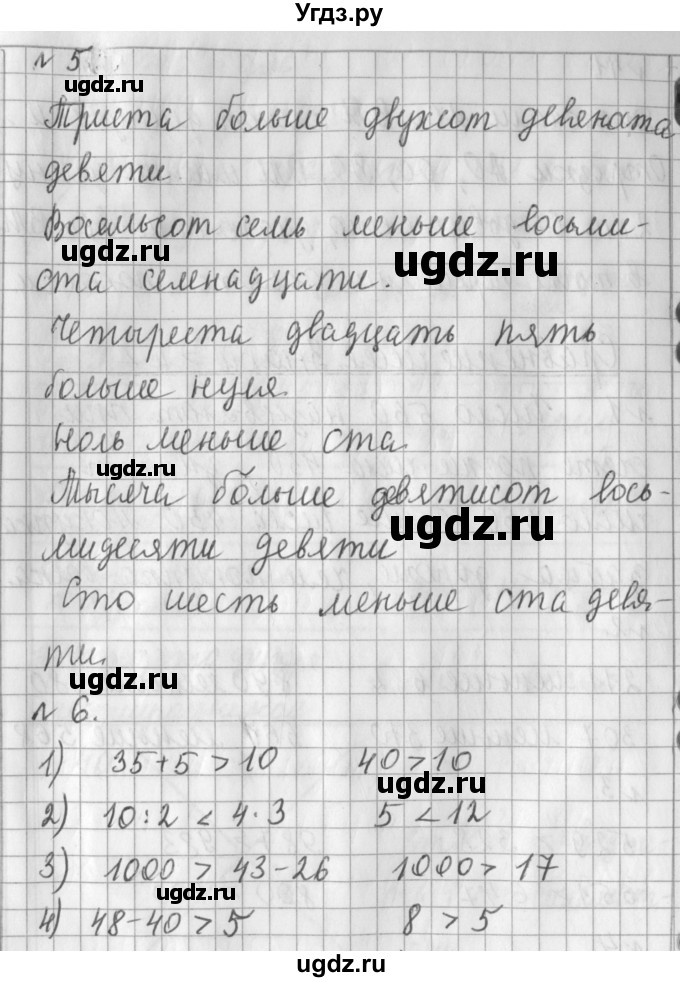 Угдз.ру
№ 5.
Триста больше двухсот девяноста
девяти.
Восемьсот семь меньше восьми-
ugdz.ru
ugdz.ru
ста семнадцати.
Четыреста двадцать пять
больше нуля.
Ноль меньше ста.
ugdz.ru
Тысяча больше девятисот вось-
ugdz.ru
мидесяти девяти
Сто шесть меньше ста девя-
ти.
ugdz.ru
№ 6.
1) 35+5 > 10 40 > 10
ugdz.ru
2) 10:2 < 4·3 5 < 12
3) 1000 > 43-26 1000 > 17
ugdz.ru
4) 48-40 > 5 8 > 5
ugdz.ru